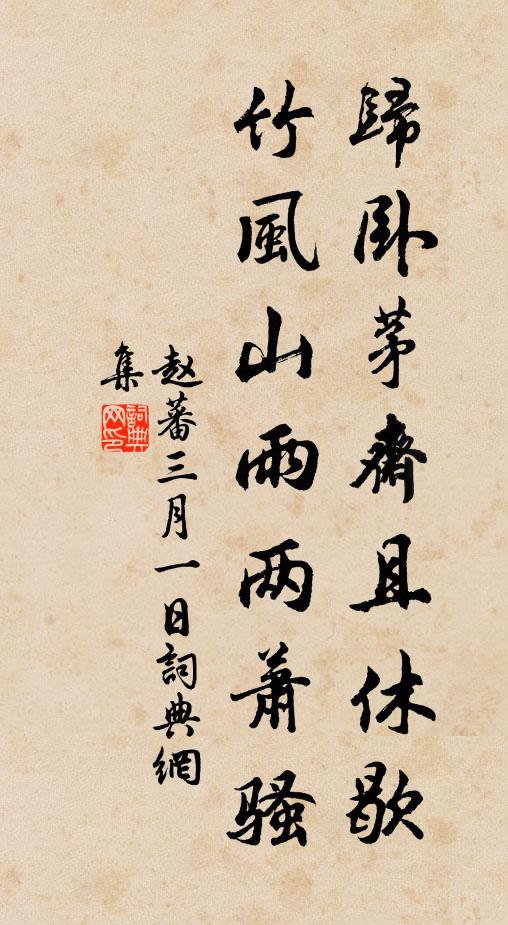 歸臥茅齋且休歇
竹風山雨兩蕭騷
赵蕃三月一日詞典網
集
詞典
网印